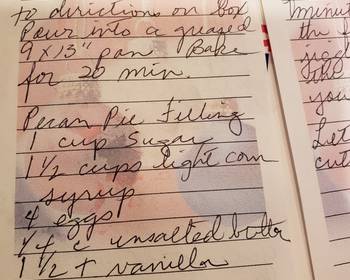 to directions on box
Pour into a greased
9 x 13" pan. Bake
for 20 min.
Pecan Pie Filling
1 cup Sugar
1 1/2 cups light corn
syrup
4 eggs
1/4 c unsalted butter
1 1/2 t vanilla
1 minut
the f
you
Let
cut